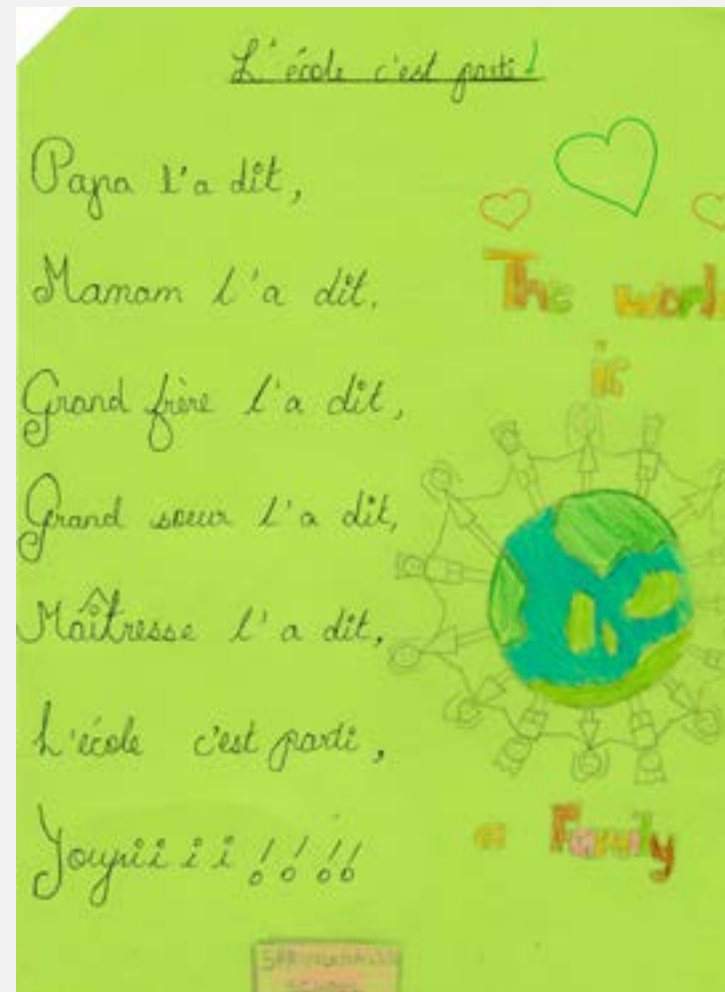 L'école c'est parti !
Papa l'a dit,
Maman l'a dit.
Grand frère l'a dit,
Grand soeur l'a dit,
Maîtresse l'a dit,
L'école c'est parti,
Youpiii i i !!!!
The
is
a Family
SCHOOL